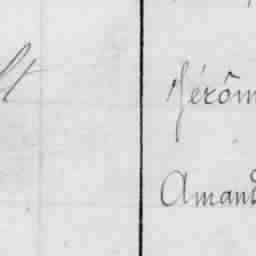 Jérôm
Amand